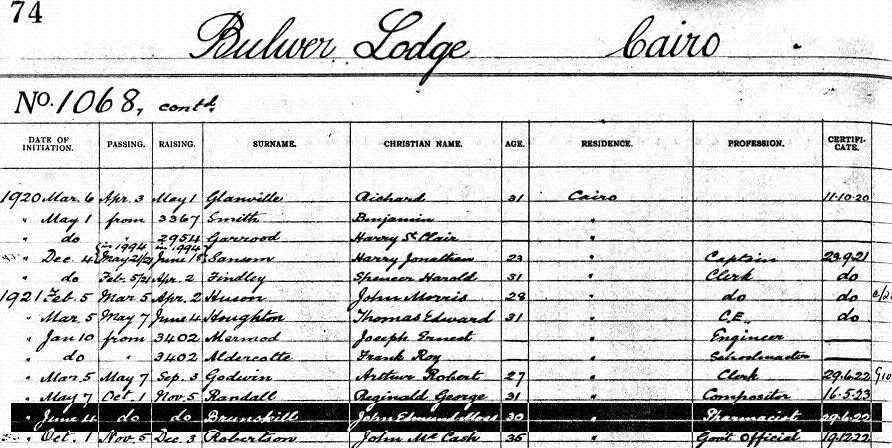 74
Bulwer Lodge Cairo
No. 1068, contd.
DATE OF INITIATION. PASSING. RAISING. SURNAME. CHRISTIAN NAME. AGE. RESIDENCE. PROFESSION. CERTIFICATE.
1920 Mar. 6 Apr. 3 May 1 Glanville Richard 31 Cairo 11·10·20
" May 1 from 3367 Smith Benjamin "
" do " 2954 Garrood Harry St Clair "
in 1994 in 1994
" Dec. 4 May 21/21 June 18 Sansom Harry Jonathan 23 " Captain 23.9.21
" do Feb. 5/21 Apr. 2 Findley Spencer Harold 31 " Clerk do
1921 Feb. 5 Mar 5 Apr. 2 Huson John Morris 28 " do do
" Mar. 5 May 7 June 4 Houghton Thomas Edward 31 " C.E. do
" Jan 10 from 3402 Mermod Joseph Ernest — " Engineer —
" do " 3402 Frank Roy — " Schoolmaster —
" Mar. 5 May 7 Sep. 3 Godwin Arthur Robert 27 " Clerk 29.6.22
" May 7 Oct. 1 Nov. 5 Randall Reginald George 31 " Compositor 16.5.23
" June 4 do do Brunskill John Edmund Moss 30 " Pharmacist 29.6.22
" Oct. 1 Nov. 5 Dec. 3 Robertson John McCash 35 " Govt Official 19.12.22